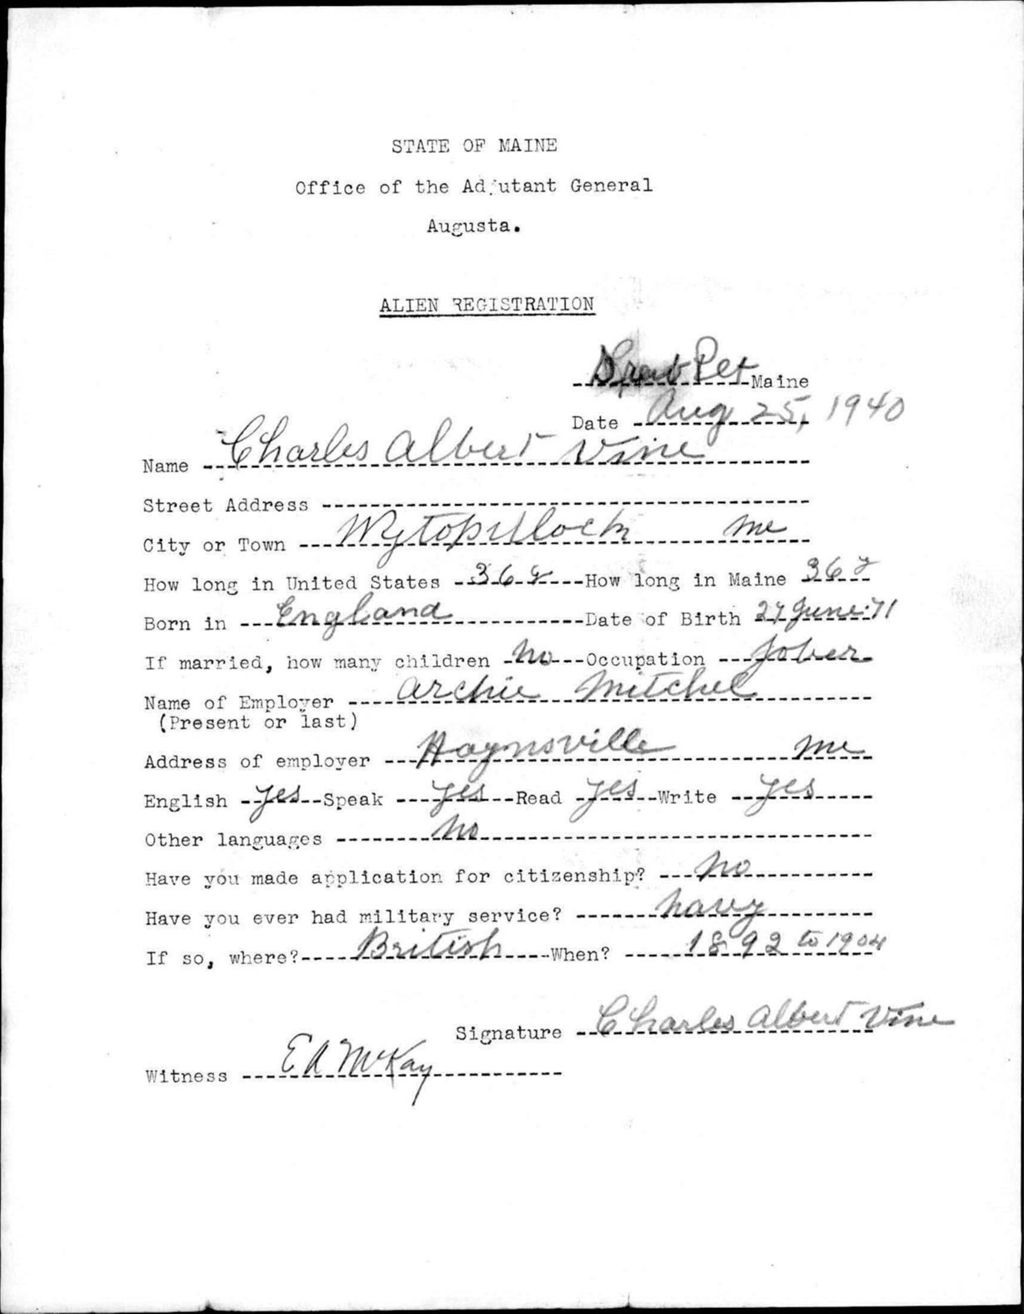 STATE OF MAINE
Office of the Adjutant General
Augusta.
ALIEN REGISTRATION
Plt Maine
Date Aug 25, 1940
Name Charles Albert Vine
Street Address
City or Town Wytopitlock Me
How long in United States 36 y How long in Maine 36 y
Born in England Date of Birth 27 June 71
If married, how many children No Occupation Jober
Name of Employer Archie Mitchel
(Present or last)
Address of employer Haynsville Me
English Yes Speak Yes Read Yes Write Yes
Other languages No
Have you made application for citizenship? No
Have you ever had military service? Navy
If so, where? British When? 1892 to 1904
Signature Charles Albert Vine
Witness E A McKay